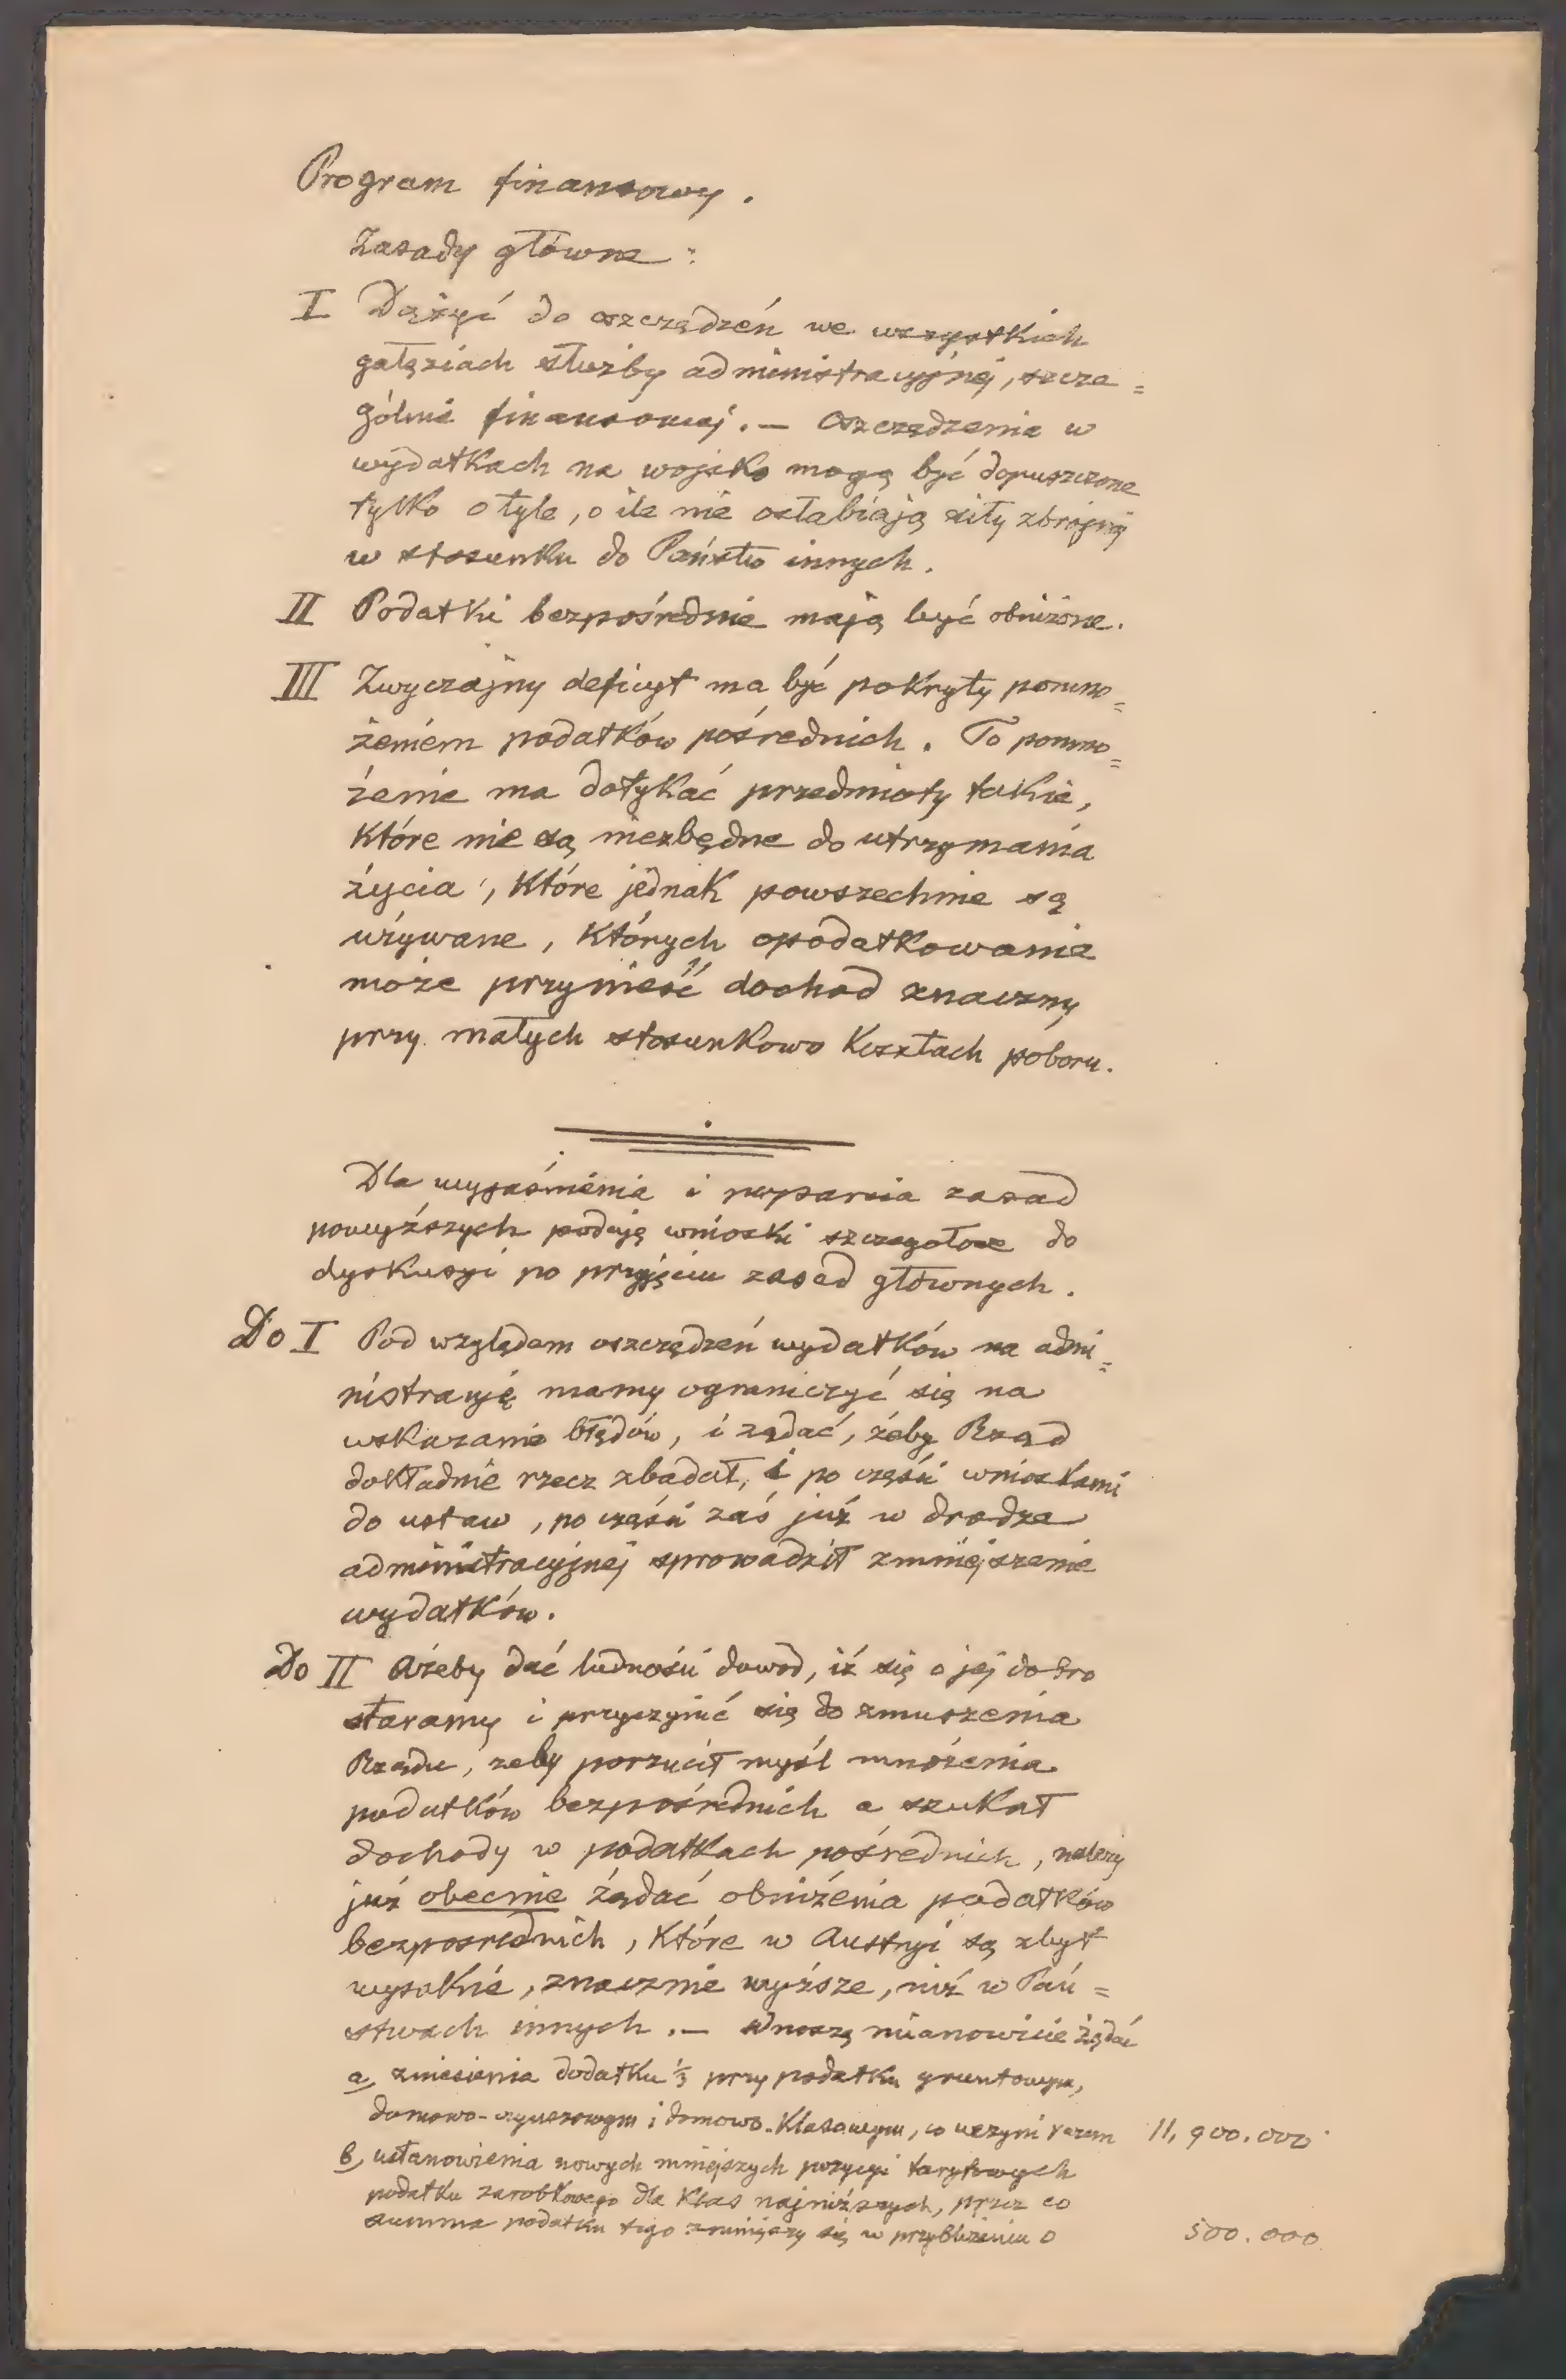 Program finansowy.
Zasady główne:
I Dążyć do oszczędzeń we wszystkich
gałęziach służby administracyjnej, szcze=
gólnie finansowej. — Oszczędzenia w
wydatkach na wojsko mogą być dopuszczone
tylko o tyle, o ile nie osłabiają siły zbrojnej
w stosunku do Państw innych.
II Podatki bezpośrednie mają być obniżone.
III Zwyczajny deficyt ma być pokryty pomno=
żeniem podatków pośrednich. To pomno=
żenie ma dotykać przedmioty takie,
które nie są niezbędne do utrzymania
życia, które jednak powszechnie są
używane, których opodatkowanie
może przynieść dochod znaczny
przy małych stosunkowo kosztach poboru.
Dla wyjaśnienia i poparcia zasad
powyższych podaję wnioski szczegołowe do
dyskusyi po przyjęciu zasad głównych.
Do I Pod względem oszczędzeń wydatków na admi=
nistracyję mamy ograniczyć się na
wskazanie błędów, i żądać, żeby Rząd
dokładnie rzecz zbadał, i po części wnioskami
do ustaw, po części zaś już w drodze
administracyjnej sprowadził zmniejszenie
wydatków.
Do II Ażeby dać ludności dowod, iż się o jej dobro
staramy i przyczynić się do zmuszenia
Rządu, żeby porzucił myśl mnożenia
podatków bezpośrednich a szukał
dochody w podatkach pośrednich, należy
już obecnie żądać obniżenia podatków
bezpośrednich, które w Austryi są zbyt
wysokie, znacznie wyższe, niż w Pań=
stwach innych. — Wnoszę mianowicie żądać
a, zniesienia dodatku ⅓ przy podatku gruntowym,
domowo-czynszowym i domowo-klasowym, co uczyni razem 11,900.000
b, ustanowienia nowych mniejszych pozycyi taryfowych
podatku zarobkowego dla klas najniższych, przez co
summa podatku tego zmniejszy się w przybliżeniu o 500.000